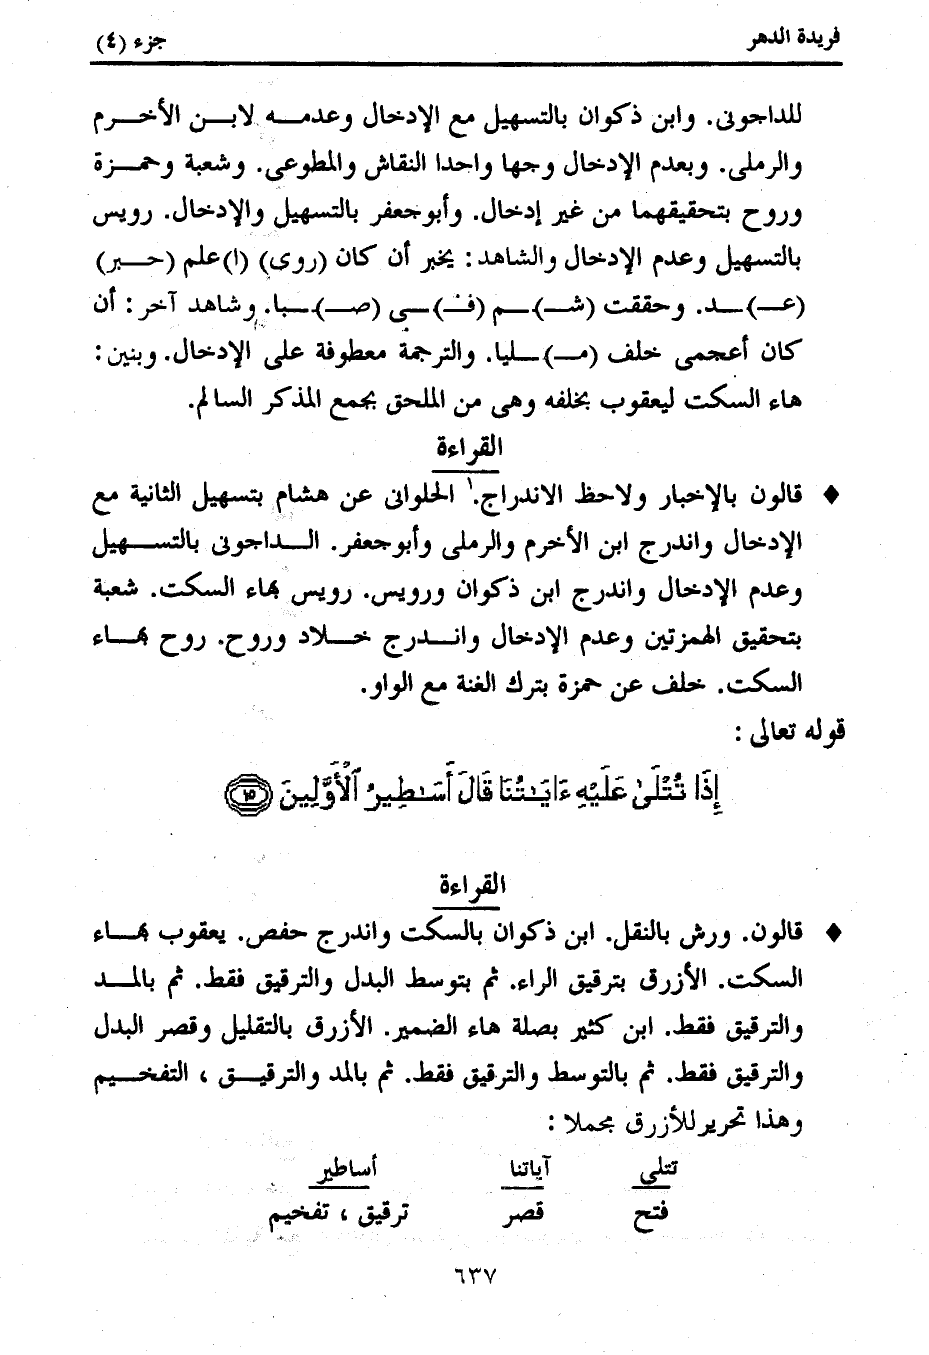 فريدة الدهر
جزء (٤)
للداجونى. وابن ذكوان بالتسهيل مع الإدخال وعدمه لابن الأخرم
والرملى. وبعدم الإدخال وجها واحدا النقاش والمطوعى. وشعبة وحمزة
وروح بتحقيقهما من غير إدخال. وأبوجعفر بالتسهيل والإدخال. رويس
بالتسهيل وعدم الإدخال والشاهد: يخبر أن كان (روى) (ا)علم (حبر)
(عـ)ـد. وحققت (شـ)ـم (فـ)ـى (صـ)ـبا. وشاهد آخر: أن
كان أعجمى خلف (مـ)ـليا. والترجمة معطوفة على الإدخال. وبنين:
هاء السكت ليعقوب بخلفه وهى من الملحق بجمع المذكر السالم.
القراءة
♦ قالون بالإخبار ولاحظ الاندراج. الحلوانى عن هشام بتسهيل الثانية مع
الإدخال واندرج ابن الأخرم والرملى وأبوجعفر. الداجونى بالتسهيل
وعدم الإدخال واندرج ابن ذكوان ورويس. رويس بهاء السكت. شعبة
بتحقيق الهمزتين وعدم الإدخال واندرج خلاد وروح. روح بهاء
السكت. خلف عن حمزة بترك الغنة مع الواو.
قوله تعالى:
إِذَا تُتْلَىٰ عَلَيْهِ ءَايَـٰتُنَا قَالَ أَسَـٰطِيرُ ٱلْأَوَّلِينَ ١٥
القراءة
♦ قالون. ورش بالنقل. ابن ذكوان بالسكت واندرج حفص. يعقوب بهاء
السكت. الأزرق بترقيق الراء. ثم بتوسط البدل والترقيق فقط. ثم بالمد
والترقيق فقط. ابن كثير بصلة هاء الضمير. الأزرق بالتقليل وقصر البدل
والترقيق فقط. ثم بالتوسط والترقيق فقط. ثم بالمد والترقيق، التفخيم
وهذا تحرير للأزرق مجملا:
تتلى آياتنا أساطير
فتح قصر ترقيق، تفخيم
٦٣٧